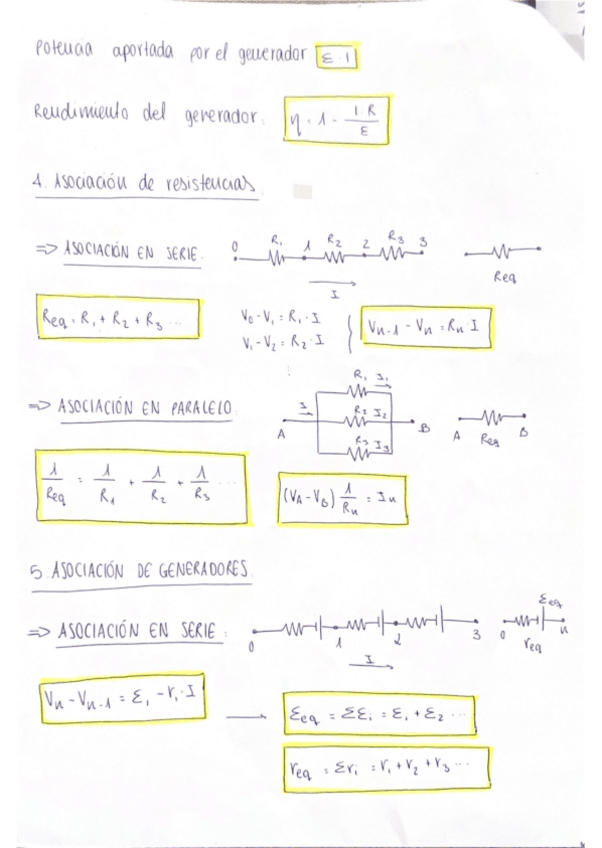 Potencia aportada por el generador ε·I
Rendimiento del generador: η = 1 - I·R / ε
4. Asociación de resistencias.
=> ASOCIACIÓN EN SERIE. 0 R₁ 1 R₂ 2 R₃ 3 Req
I
Req = R₁ + R₂ + R₃ ...
V₀ - V₁ = R₁·I
V₁ - V₂ = R₂·I
Vn-1 - Vn = Rn·I
=> ASOCIACIÓN EN PARALELO. A I R₁ I₁ R₂ I₂ R₃ I₃ B A Req B
1/Req = 1/R₁ + 1/R₂ + 1/R₃ ...
(VA - VB) 1/Rn = In
5. ASOCIACIÓN DE GENERADORES.
=> ASOCIACIÓN EN SERIE: 0 1 2 3 0 req εeq n
I
Vn - Vn-1 = εi - ri·I
εeq = Σεi = ε₁ + ε₂ ...
req = Σri = r₁ + r₂ + r₃ ...